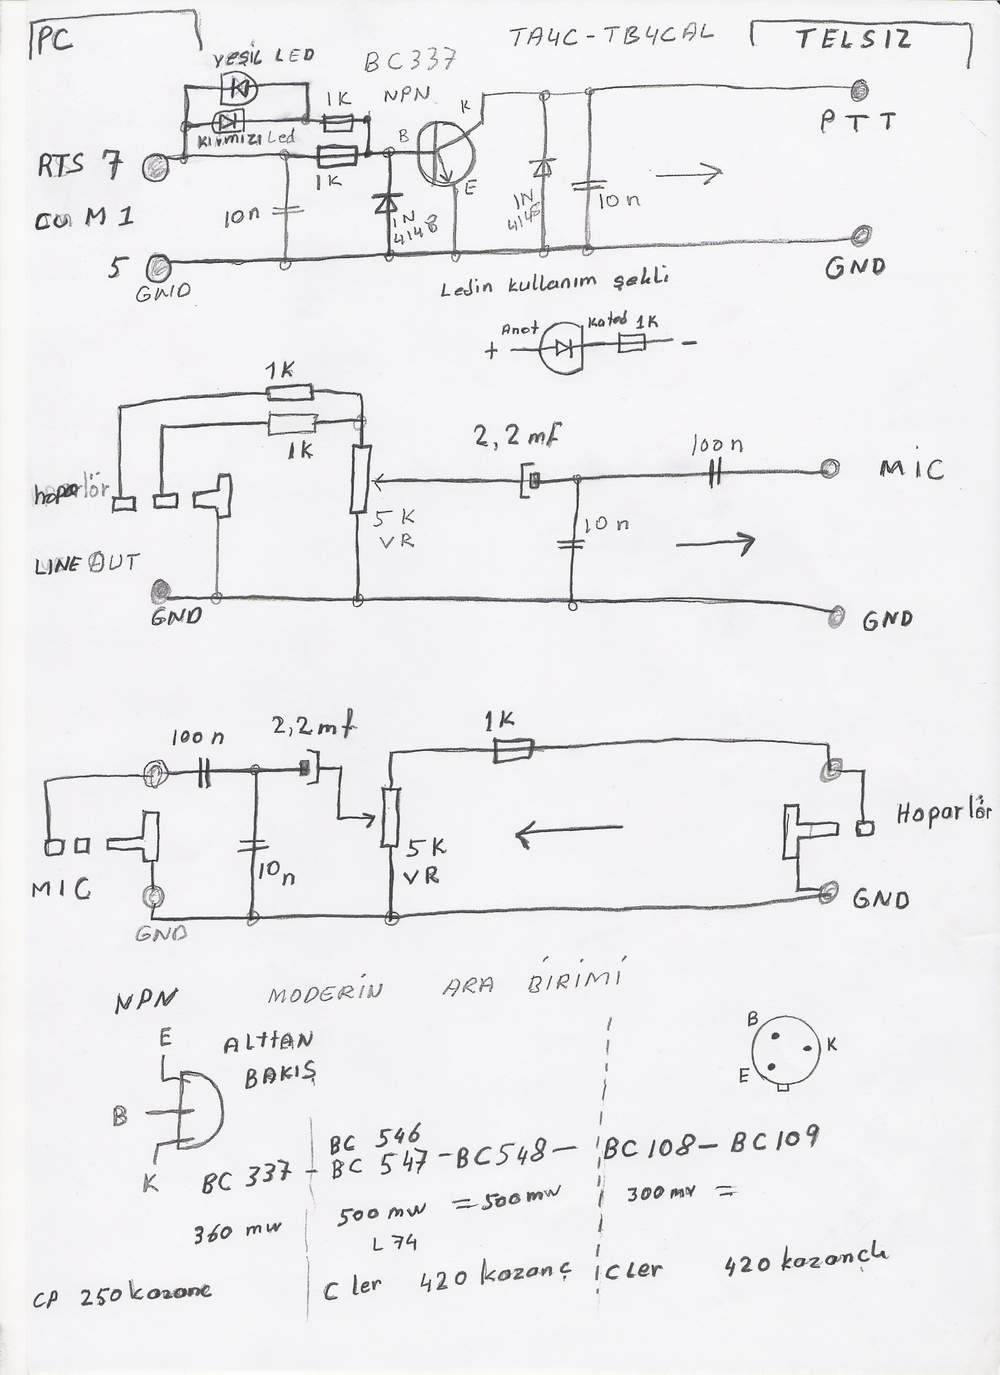 PC
TA4C-TB4CAL
TELSIZ
YEŞİL LED
BC337
NPN
1K
K
PTT
KIRMIZI Led
B
RTS 7
1K
E
10n
1N
4148
1N
4148
10n
COM1
5
GND
GND
Ledin kullanım şekli
Anot
Katod
1K
+
-
1K
1K
2,2mf
100n
MİC
hoparlör
5K
VR
10n
LINE OUT
GND
GND
100n
2,2mf
1K
Hoparlör
5K
VR
10n
MIC
GND
GND
NPN
MODERİN ARA BİRİMİ
E
ALTTAN
BAKIŞ
B
K
B
K
E
BC 546
BC 337 - BC 547 - BC548 - BC108 - BC109
360 mw
500 mw = 500mw
300mw =
L 74
CP 250 kazanç
C ler 420 kazanç
C ler 420 kazançlı